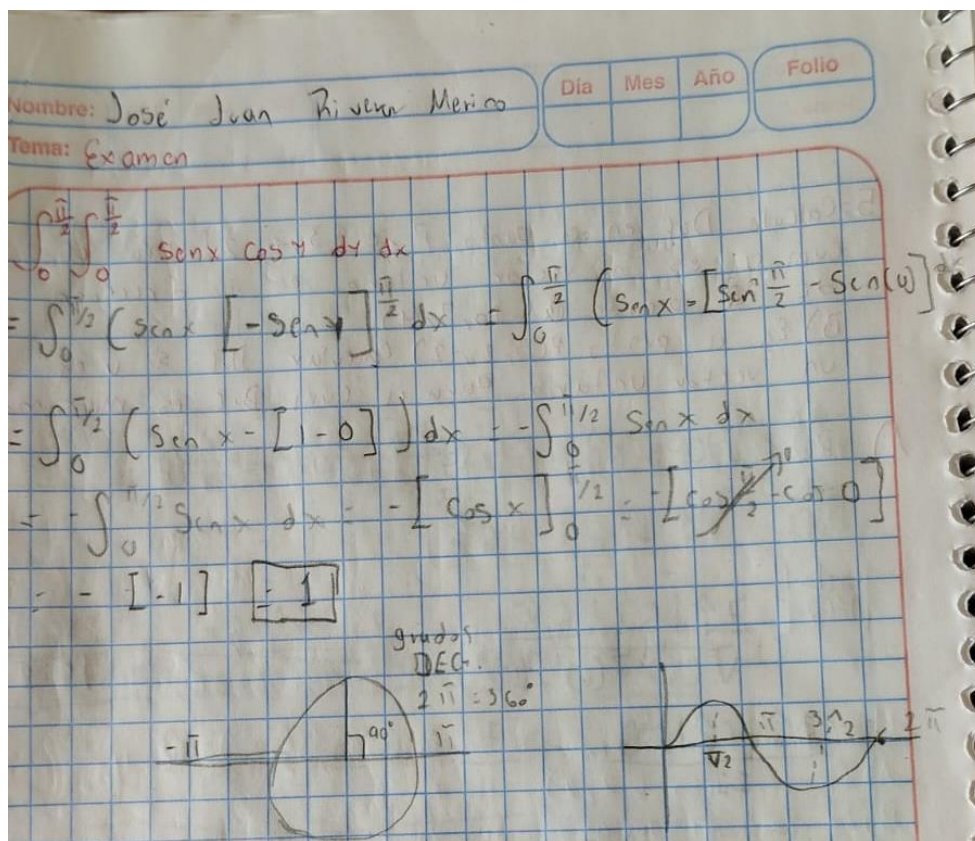 Nombre: José Juan Rivera Merino
Día Mes Año Folio
Tema: Examen
∫₀^π/2 ∫₀^π/2 senx cosy dy dx
= ∫₀^π/2 (senx [-seny]^π/2 dx = ∫₀^π/2 (senx - [sen π/2 - Sen(0)]
= ∫₀^π/2 (senx - [1-0]) dx = -∫₀^π/2 senx dx
= -∫₀^π/2 senx dx = -[cosx]₀^π/2 = -[cos π/2 - cos 0]
0
= - [-1] = 1
grados
DEG.
2π = 360°
-π 90° π
π/2 π 3π/2 2π